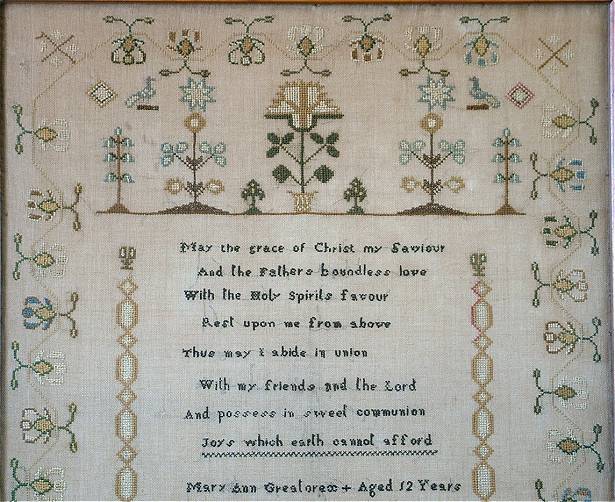 May the grace of Christ my Saviour
And the Fathers boundless love
With the Holy Spirits favour
Rest upon me from above
Thus may I abide in union
With my friends and the Lord
And possess in sweet communion
Joys which earth cannot afford
Mary Ann Greatorex + Aged 12 Years